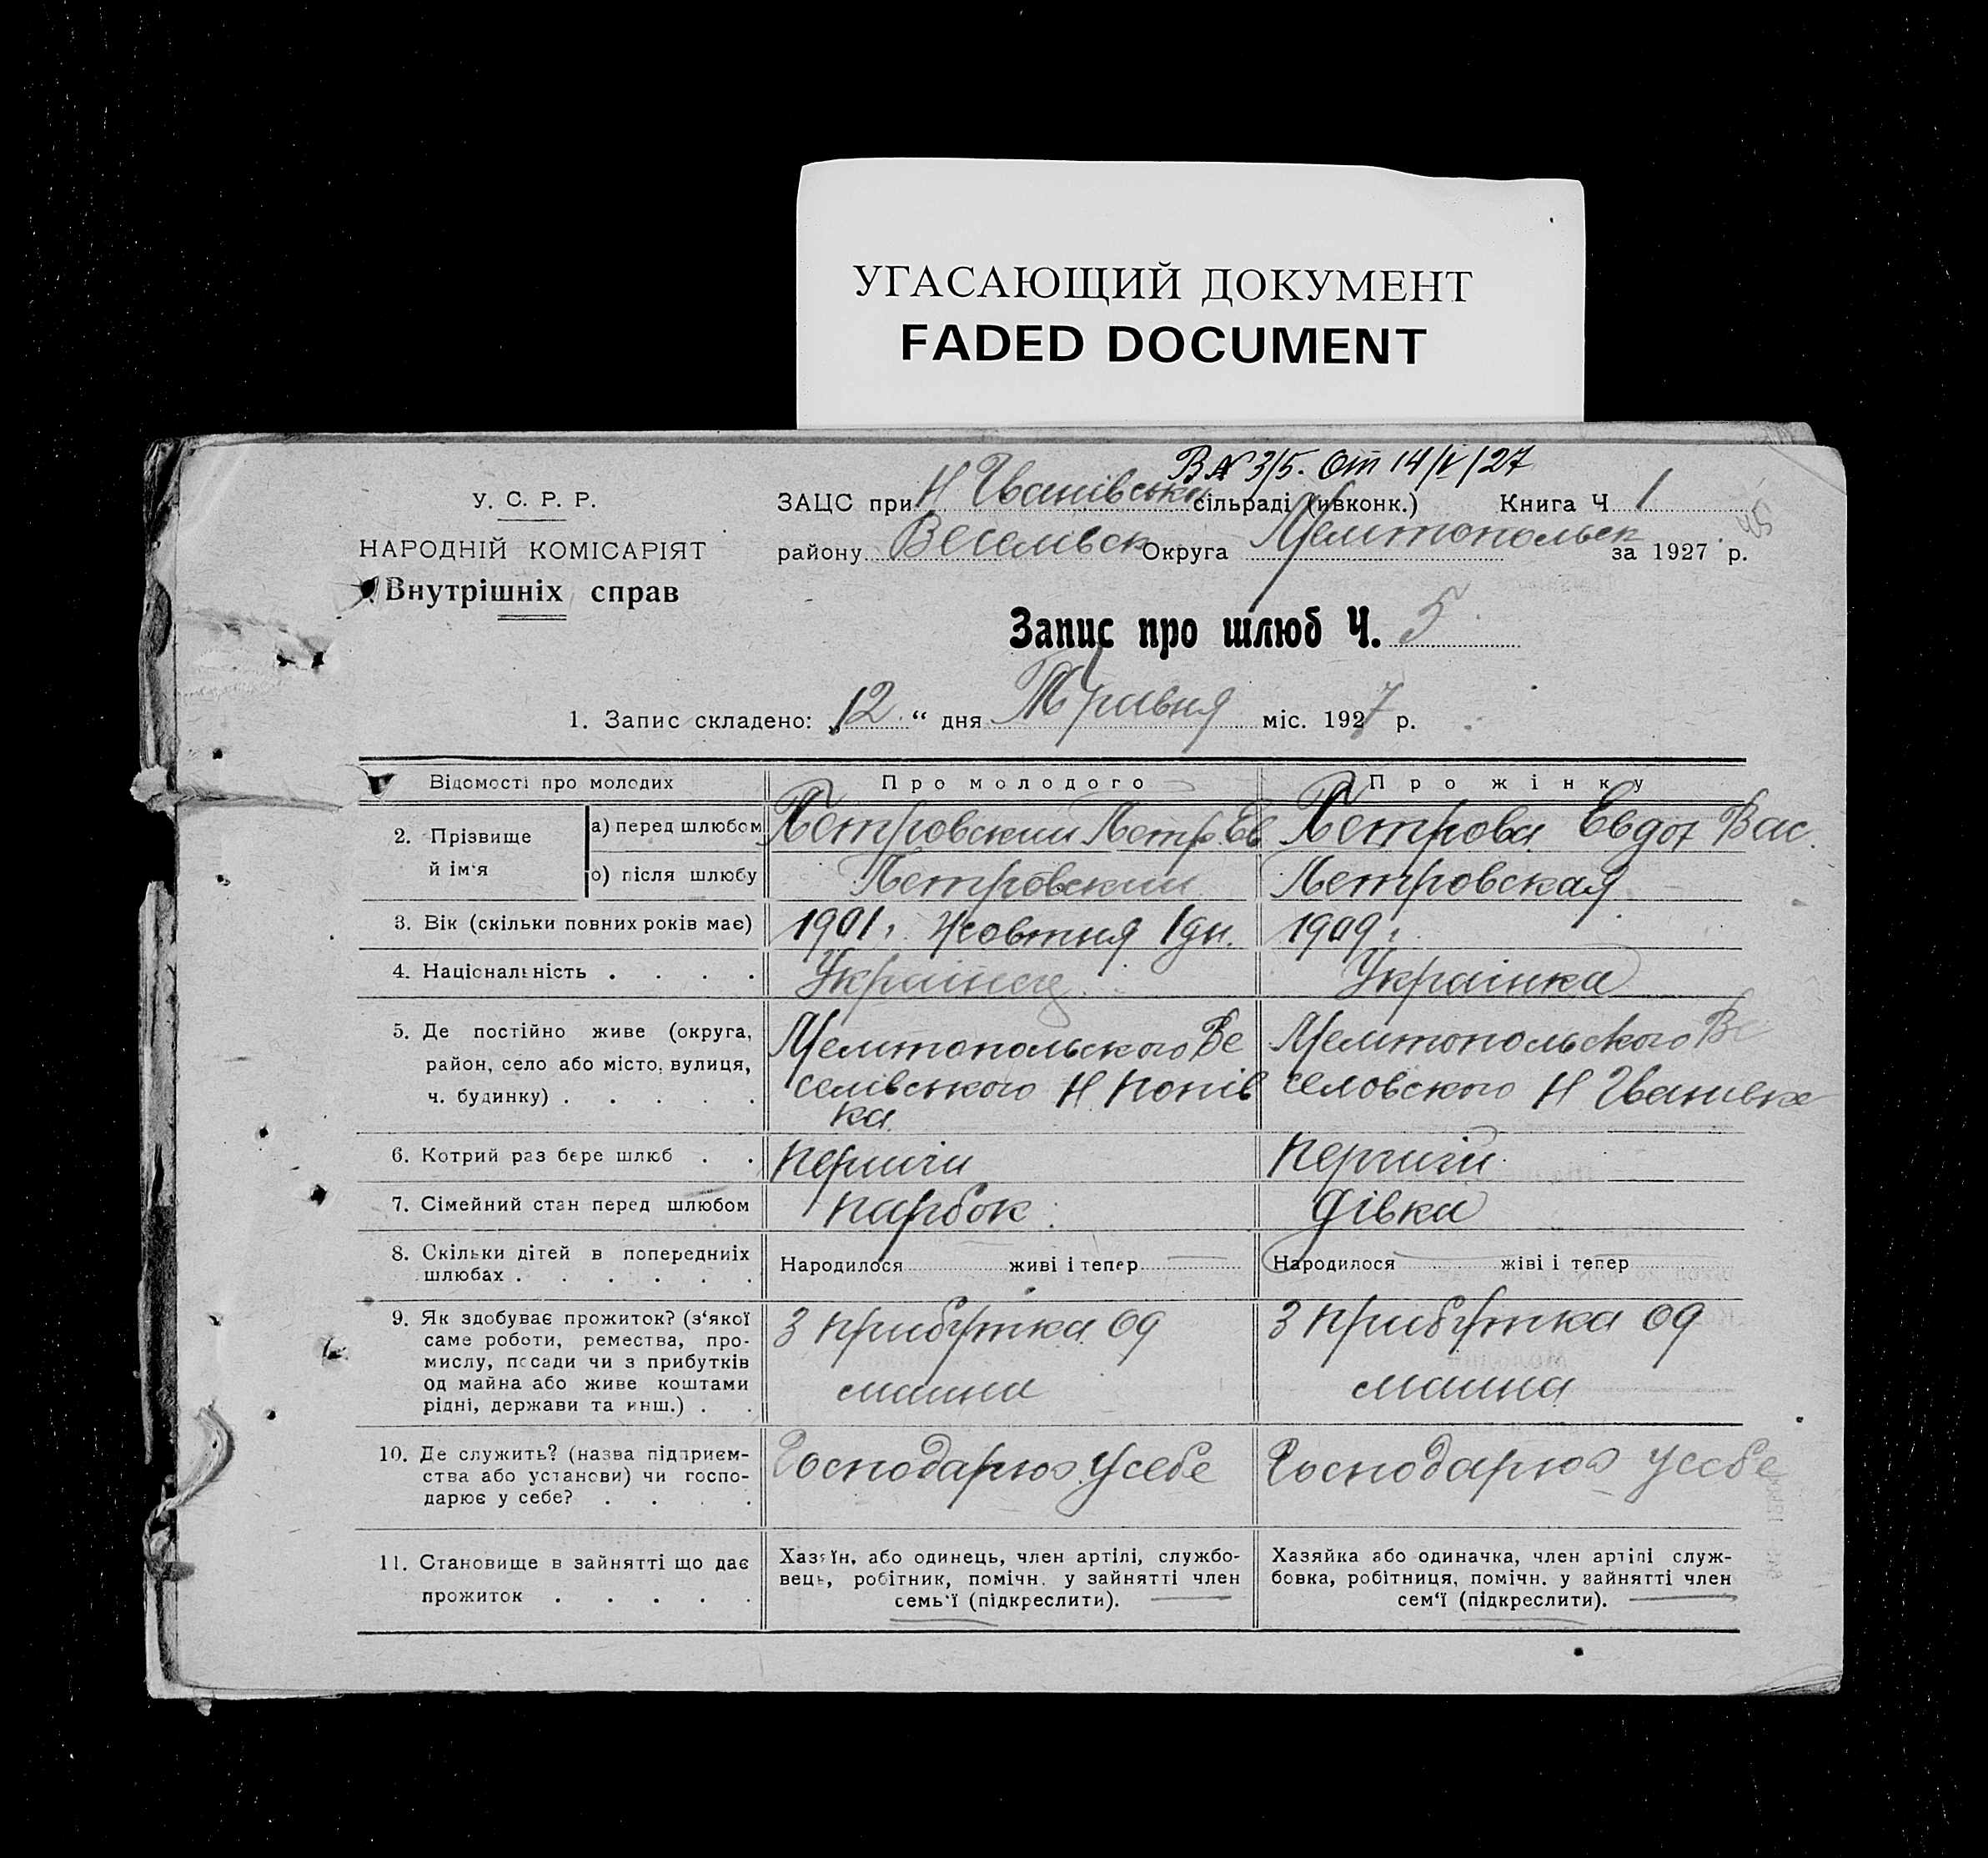 УГАСАЮЩИЙ ДОКУМЕНТ
FADED DOCUMENT
В № 3/5. от 14/V/27
У. С. Р. Р.
НАРОДНІЙ КОМІСАРІЯТ
Внутрішніх справ
ЗАЦС при Н Іванівськ сільраді (ивконк.) Книга Ч 1
району Веселівськ Округа Мелитопольск за 1927 р.
Запис про шлюб Ч. 5
1. Запис складено: 12 “ дня Травня міс. 1927 р.
Відомості про молодих Про молодого Про жінку
2. Прізвище й ім‘я
а) перед шлюбом Петровский Петр Ев Петрова Евдот Вас.
о) після шлюбу Петровский Петровская
3. Вік (скільки повних років має) 1901 г. Жовтня 1 дн. 1909 г.
4. Національність . . . . Українец Украінка
5. Де постійно живе (округа, район, село або місто, вулиця, ч. будинку) . . . . .
Мелитопольского Ве
селівського Н Попів
ка
Мелитопольского Ве
селовского Н Іванивка
6. Котрий раз бере шлюб . . перший перший
7. Сімейний стан перед шлюбом парбок дівка
8. Скільки дітей в попередниіх шлюбах . . . . . .
Народилося живі і тепер
Народилося жіві і тепер
9. Як здобуває прожиток? (з‘якої
саме роботи, ремества, про-
мислу, посади чи з прибутків
од майна або живе коштами
рідні, держави та инш.) . .
З прибутка од
маина
З прибутка од
маина
10. Де служить? (назва підприєм-
ства або установи) чи госпо-
дарює у себе? . . . .
Господарюэ у себе
Господарюэ у себе
11. Становище в зайнятті що дає
прожиток . . . . .
Хазяїн, або одинець, член артілі, службо-
вець, робітник, помічн. у зайнятті член
семь‘ї (підкреслити).
Хазяйка або одиначка, член артілі служ-
бовка, робітниця, помічн. у зайнятті член
сем‘ї (підкреслити).